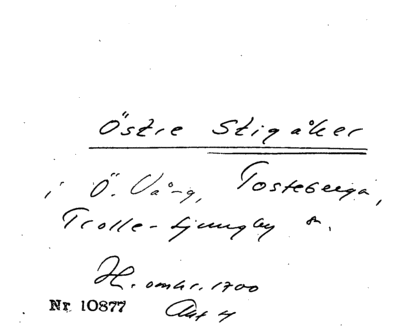 Östre Stigåker
i Ö. Vång, Tosteberga,
Trolle-Ljungby sn.
H. omkr. 1700
Nr 10877 Akt 4